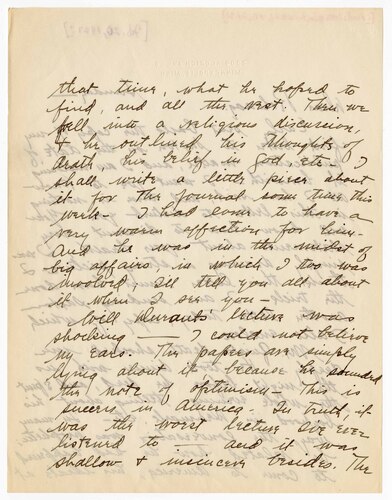 that time, what he hoped to
find, and all the rest. Then we
fell into a religious discussion,
& he outlined his thoughts of
death, his belief in God, etc - I
shall write a little piece about
it for the Journal some time this
week - I had come to have a
very warm affection for him -
And he was in the midst of
big affairs, in which I too was
involved, I'll tell you all about
it when I see you -
Will Durants' lecture was
shocking - I could not believe
my ears. The papers are simply
lying about it because he sounded
the note of optimism - This is
success in America. In truth, it
was the worst lecture I've ever
listened to - and it was
shallow & insincere besides. The